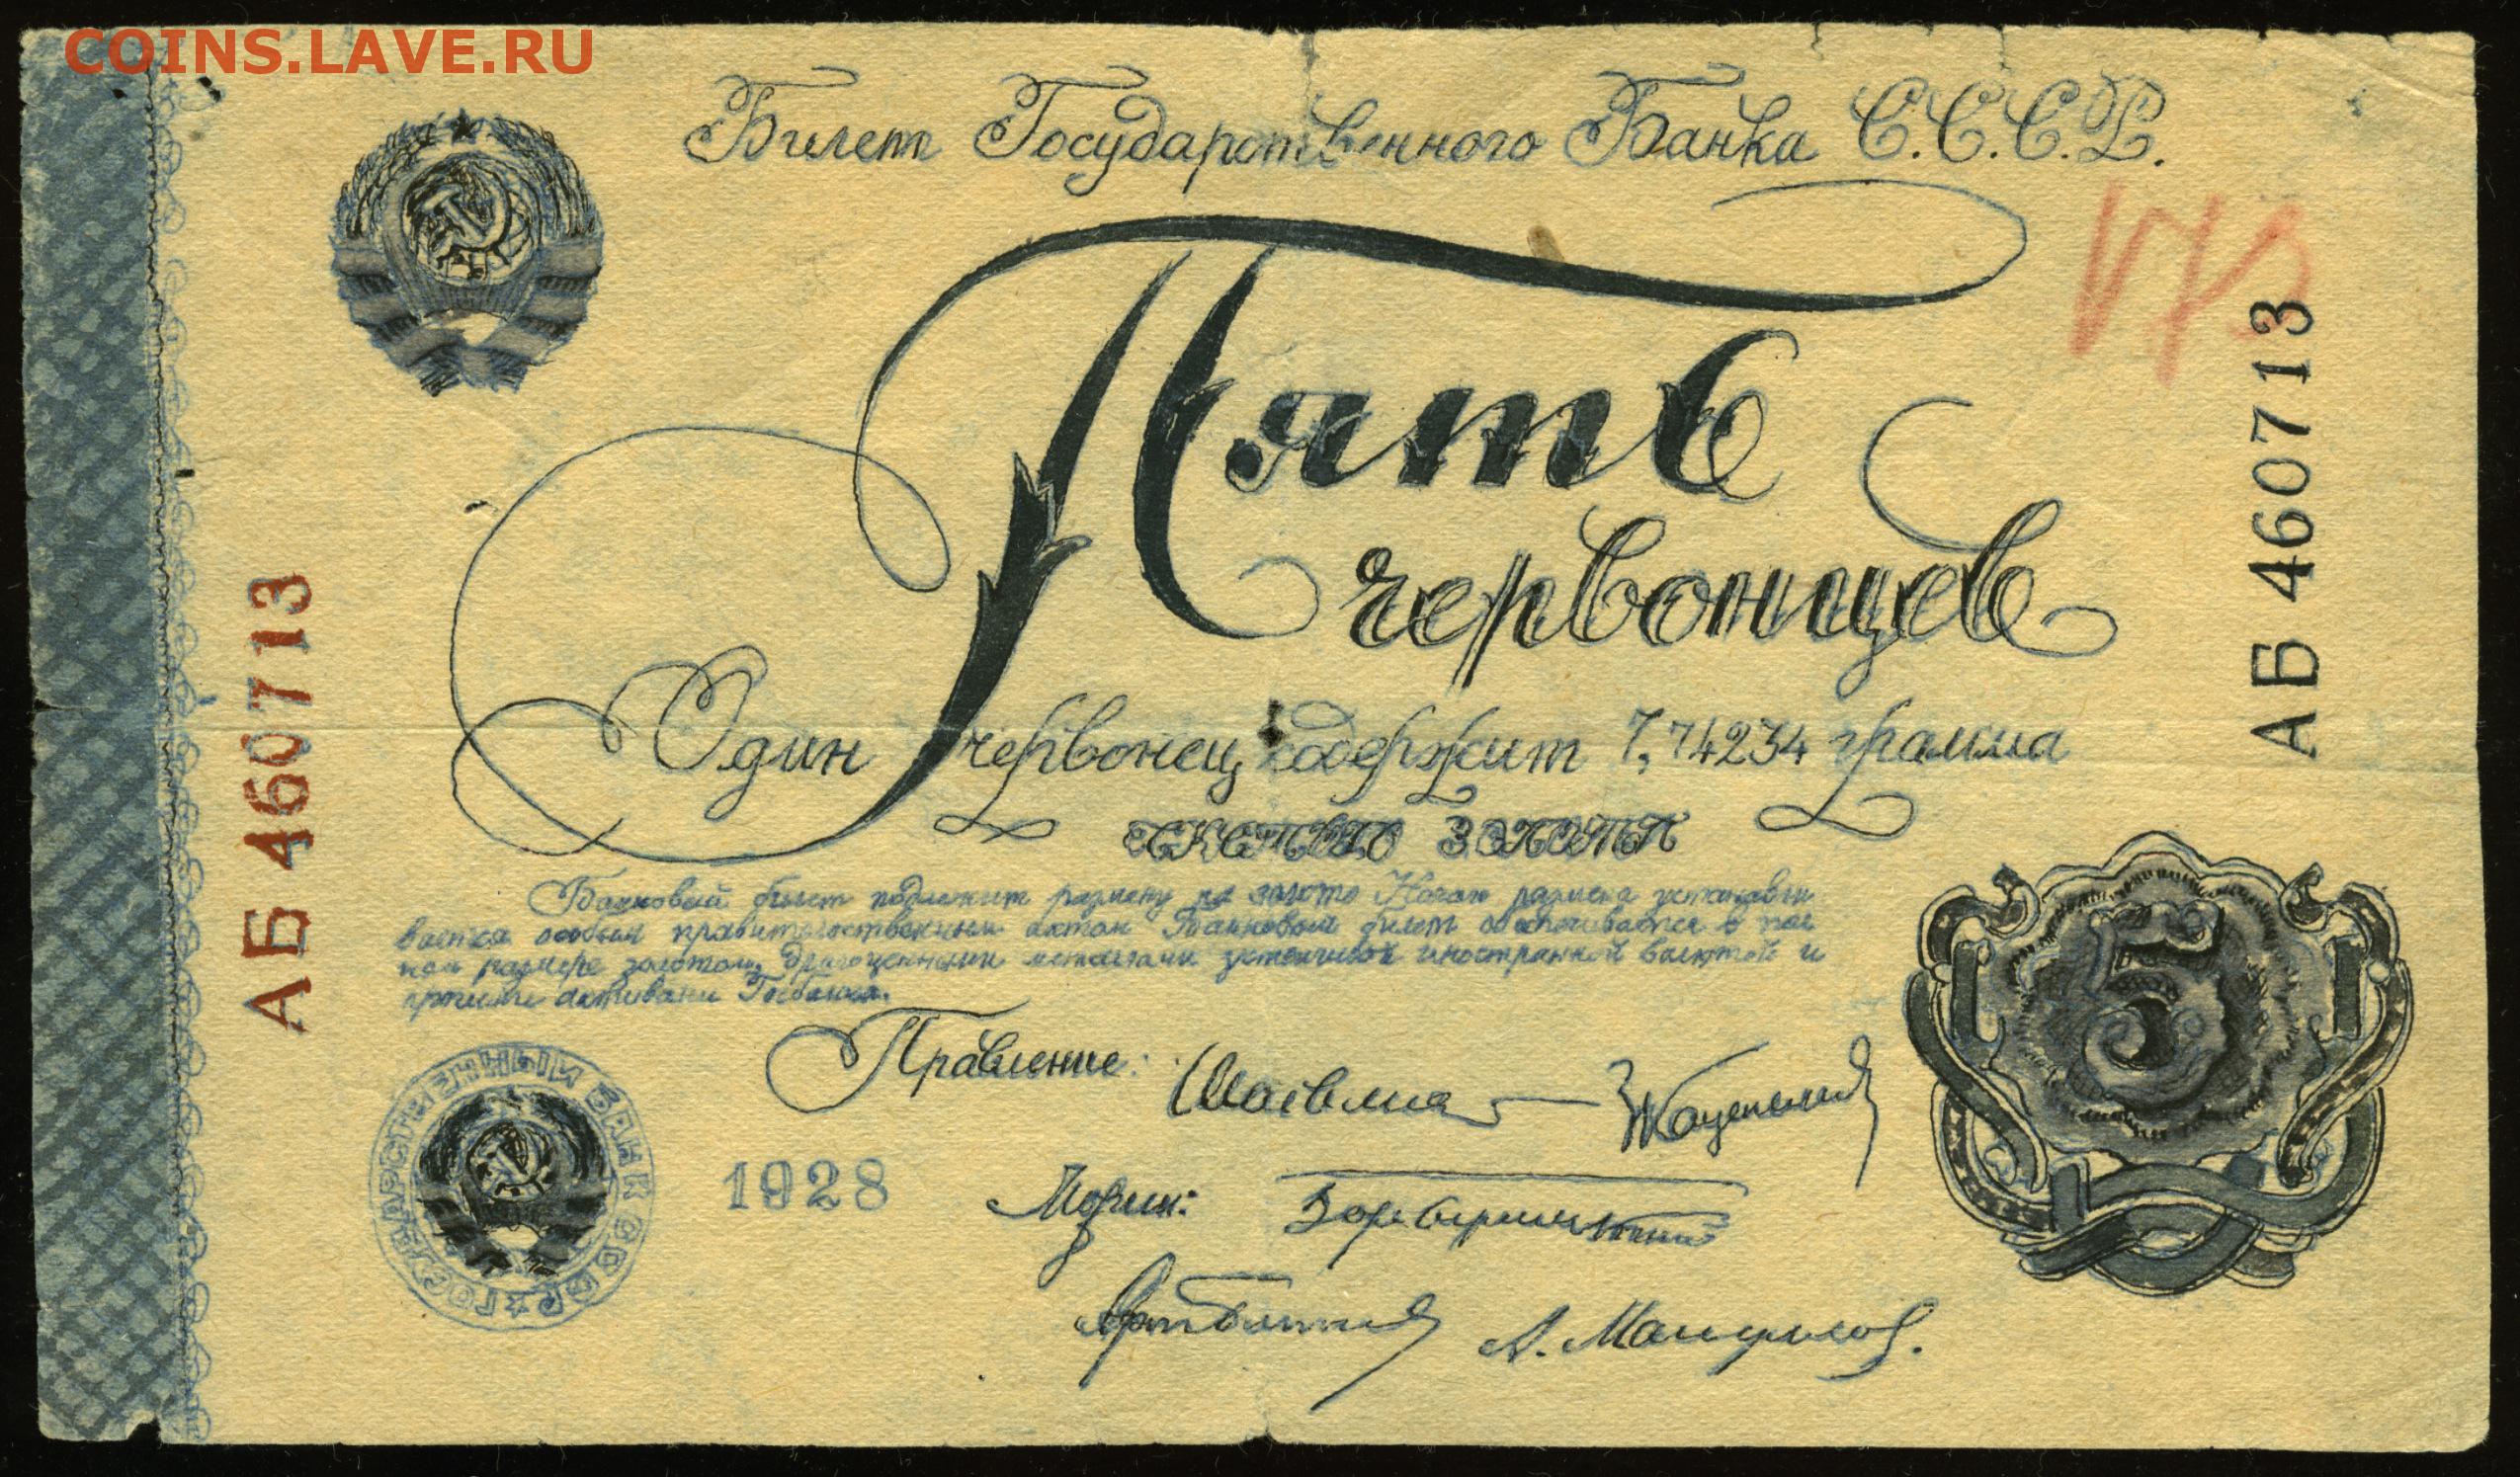 COINS.LAVE.RU
Билет Государственного Банка С.С.С.Р.
Пять
червонцев
Один червонец содержит 7,74234 грамма
золота
Банковый билет подлежит размену на золото Начало размена устанавли
вается особым правительственным актом Банковый билет обеспечивается в пол
ном размере золотом, драгоценными металлами устойчивой иностранной валютой и
активами Госбанка.
Правление:
1928
ГОСУДАРСТВЕННЫЙ БАНК СССР
АБ 460713
АБ 460713
5